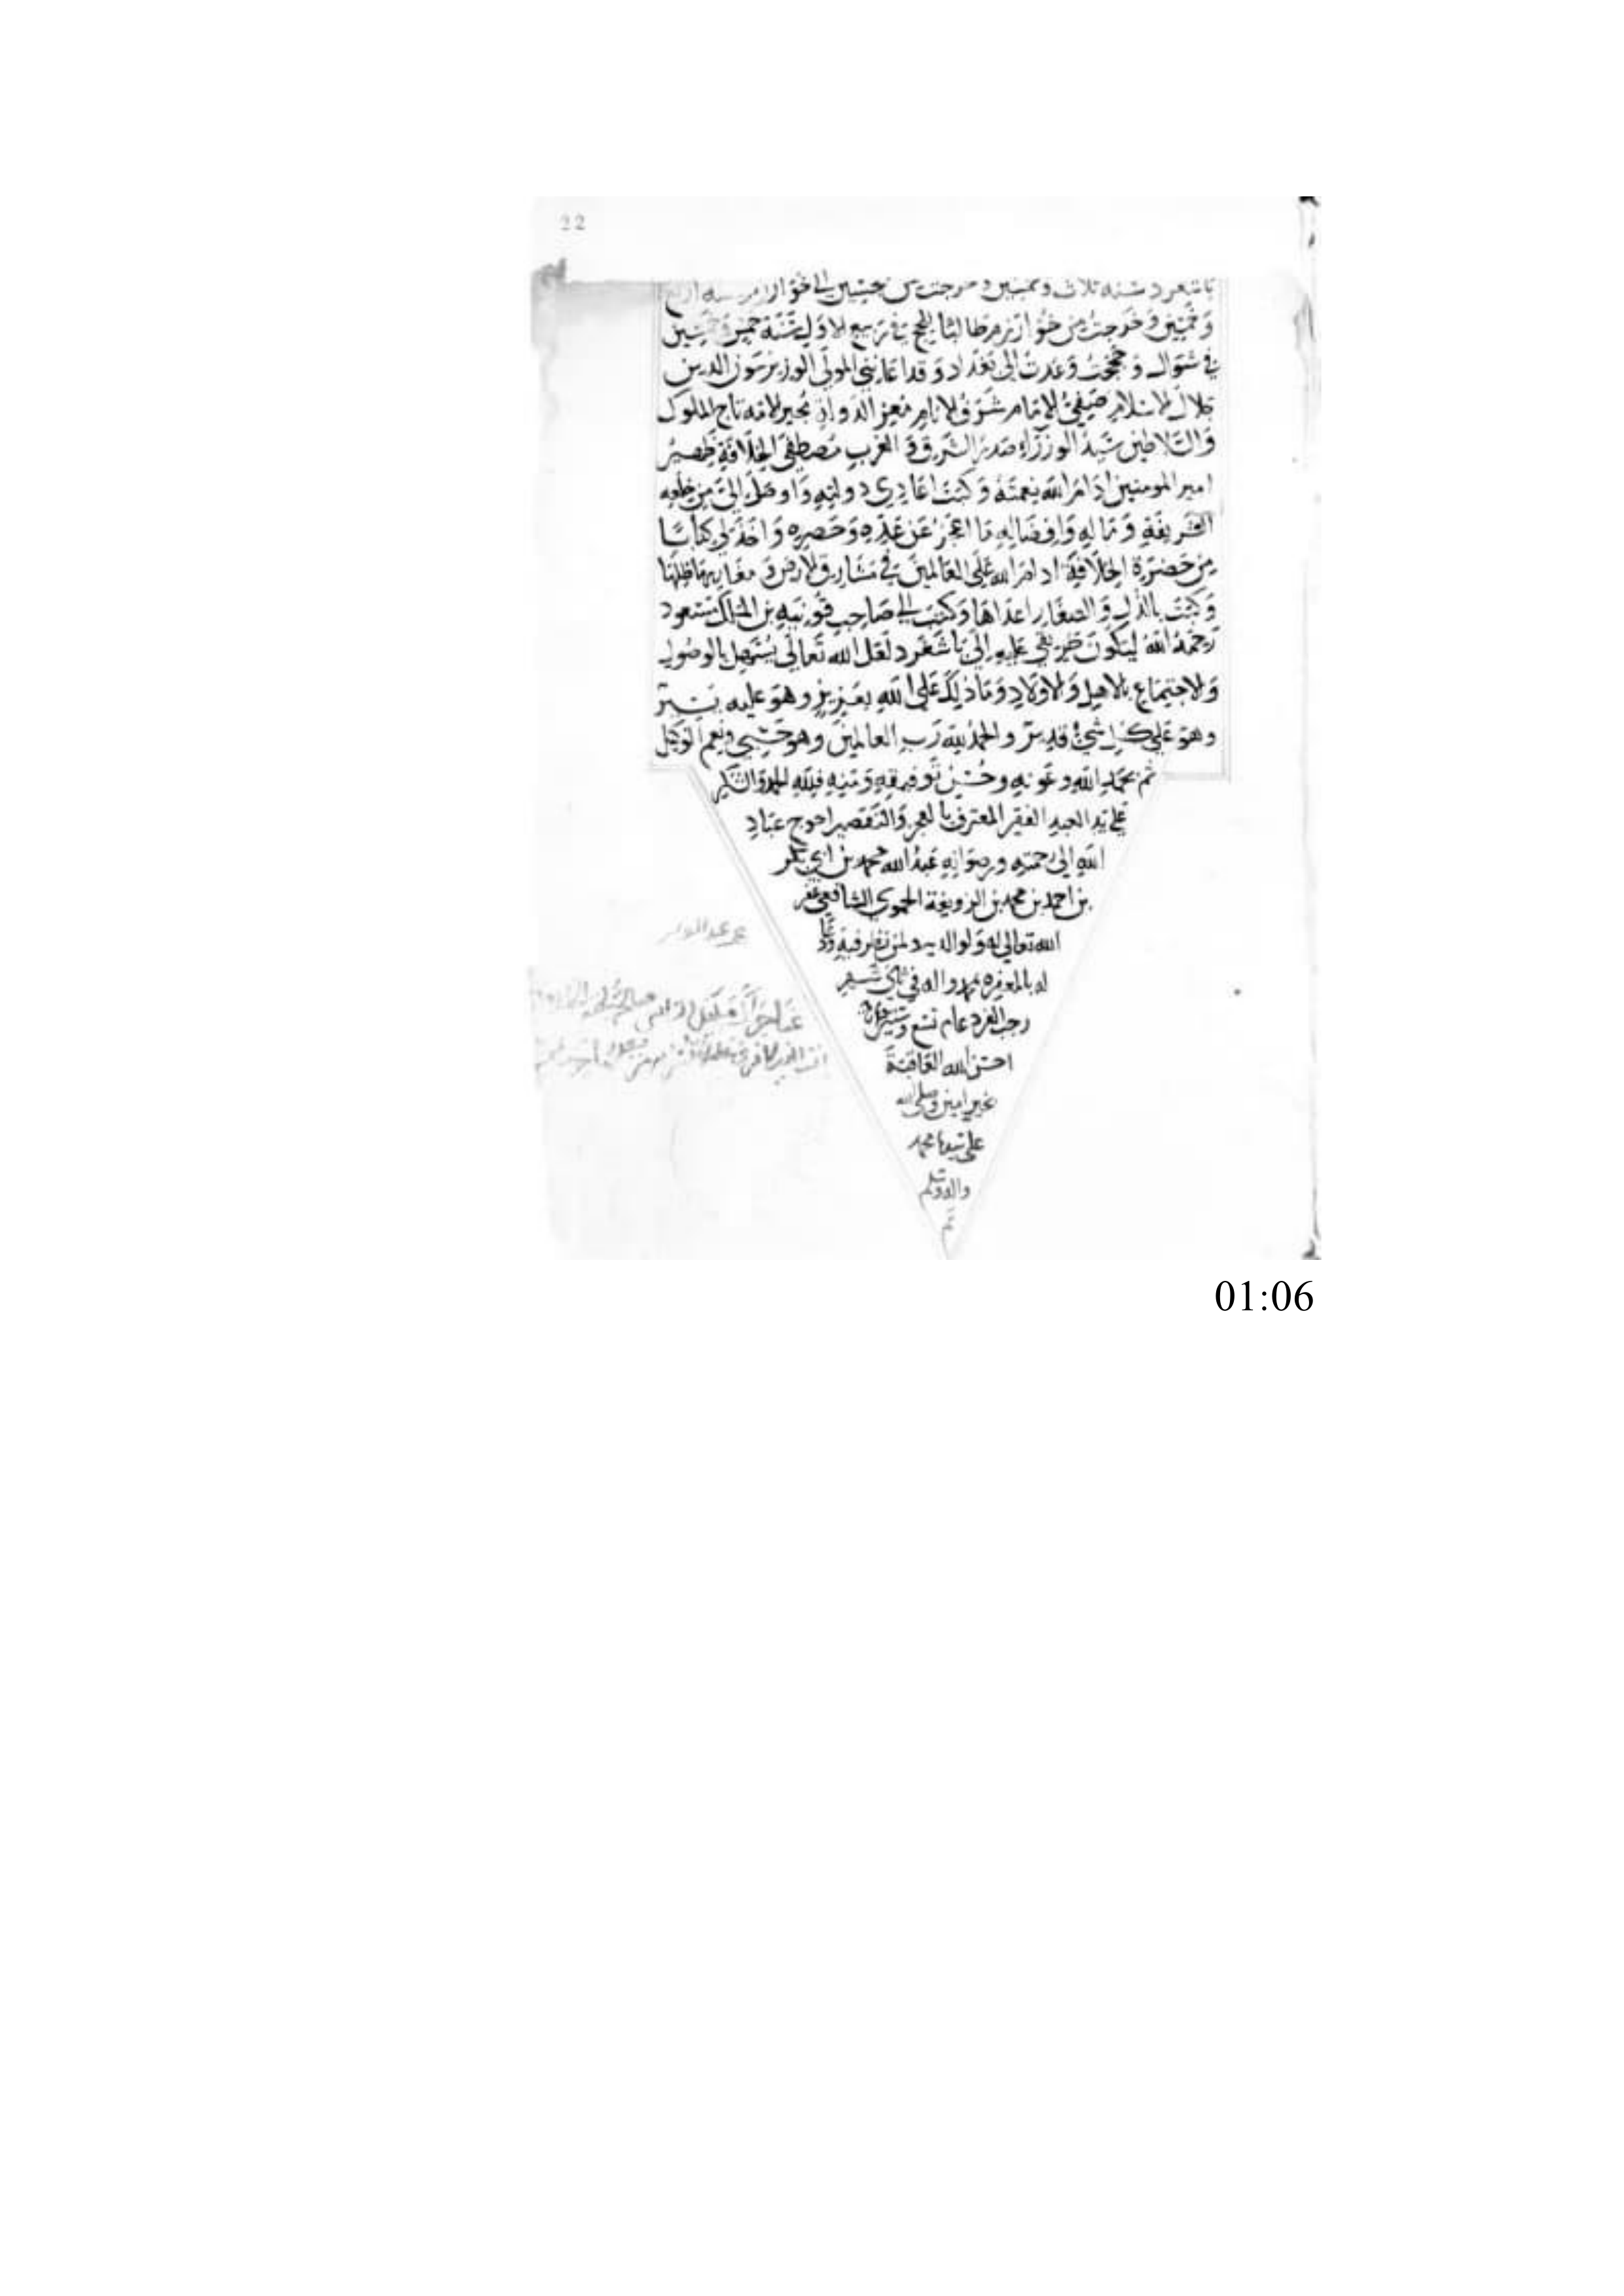 22
باشغرد سنة ثلاث وخمسين وخرجت من سخسين الى خوارزم سنة اربع
وخمسين وخرجت من خوارزم طالبا للحج في ربيع الاول سنة خمس وخمسين
في شوال وحججت وعدت الى بغداد وقد اعانني المولى الوزير عون الدين
جلال الاسلام صفي الامام شرف الانام معز الدولة مجير الامة تاج الملوك
والسلاطين سيد الوزراء صدر الشرق والغرب مصطفى الخلافة ظهير
امير المومنين ادام الله نعمته وكبت اعادي دولته واوصل الي من خلعه
الشريفة وماله وافضاله ما اعجز عن عده وحصره واخذ لي كتابا
من حضرة الخلافة ادام الله على العالمين في مشارق الارض ومغاربها ظلها
وكبت بالذل والصغار اعداها وكتب الى صاحب قونيه بن الملك مسعود
رحمه الله ليكون طريقي عليه الى باشغرد لعل الله تعالى يسهل بالوصول
والاجتماع بالاهل والاولاد وما ذلك على الله بعزيز وهو عليه يسير
وهو على كل شئ قدير والحمد لله رب العالمين وهو حسبي ونعم الوكيل
تم بحمد الله وعونه وحسن توفيقه ومنه فلله الحمد والشكر
على يد العبد الفقير المعترف بالعجز والتقصير احوج عباد
الله الى رحمته ورضوانه عبد الله محمد بن ابي بكر
بن احمد بن محمد بن الحموي الشافعي غفر
الله تعالى له ولوالديه ولمن نظر فيه ودعا
له بالمغفره بمحمد واله في ثاني شهر
رجب الفرد عام تسع
احسن الله العاقبة
بخير امين وصلى الله
على سيدنا محمد
واله وسلم
تم
01:06